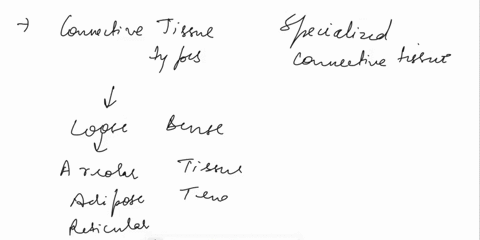 → Connective Tissue
types
Specialized
connective tissue
↓
Loose Dense
↓
Areolar Tissue
Adipose Teno
Reticular